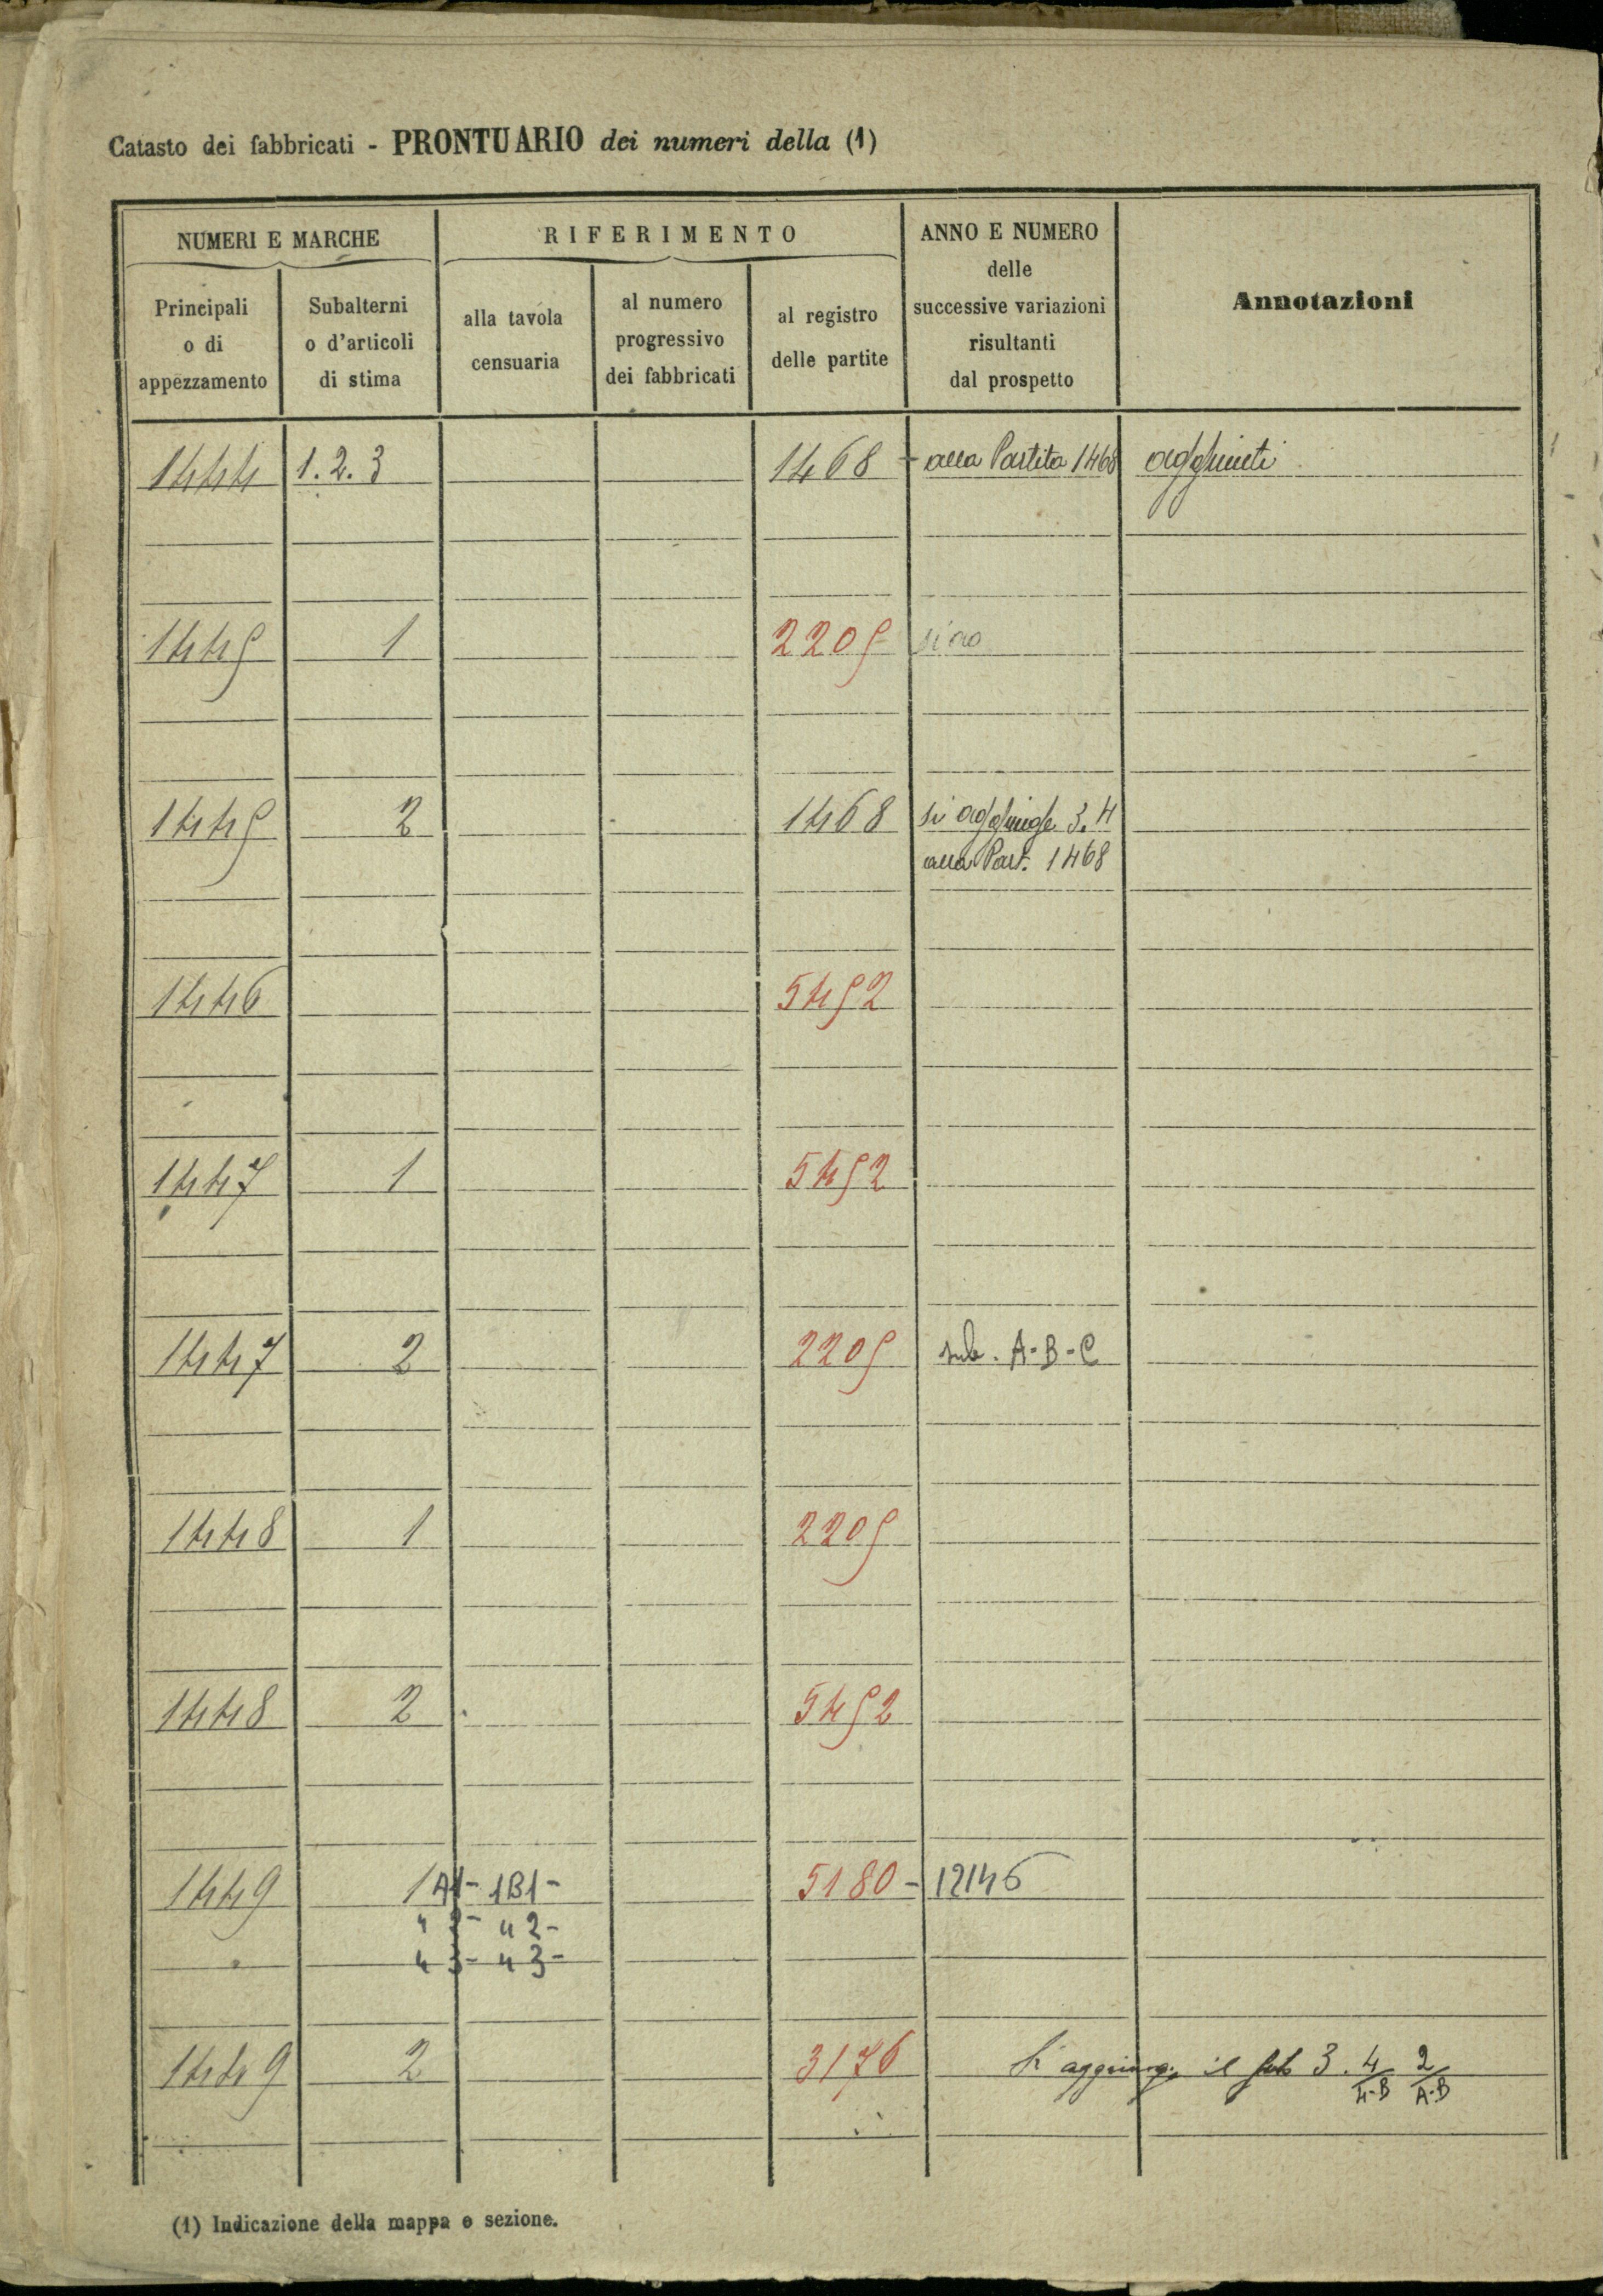 Catasto dei fabbricati - PRONTUARIO dei numeri della (1)
NUMERI E MARCHE
RIFERIMENTO
ANNO E NUMERO
delle
successive variazioni
risultanti
dal prospetto
Annotazioni
Principali
o di
appezzamento
Subalterni
o d'articoli
di stima
alla tavola
censuaria
al numero
progressivo
dei fabbricati
al registro
delle partite
1444 1.2.3 1468 - alla Partita 1468 aggiunti
1445 1 2205
1445 2 1468 si aggiunge 3.4
alla Part. 1468
1446 5452
1447 1 5452
1447 2 2205 sub. A-B-C
1448 1 2205
1448 2 5452
1449 1 A1- 1B1- 5180 - 12146
" 2- " 2-
" 3- " 3-
1449 2 3176 Si aggiung. il sub 3. 4/4-B 2/A-B
(1) Indicazione della mappa e sezione.